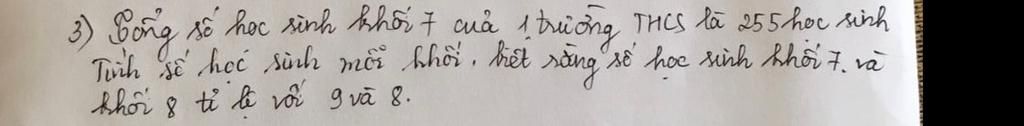 3) Tổng số học sinh khối 7 cuả 1 trường THCS là 255 học sinh
Tính số học sinh mỗi khối, biết rằng số học sinh khối 7. và
khối 8 tỉ lệ với 9 và 8.